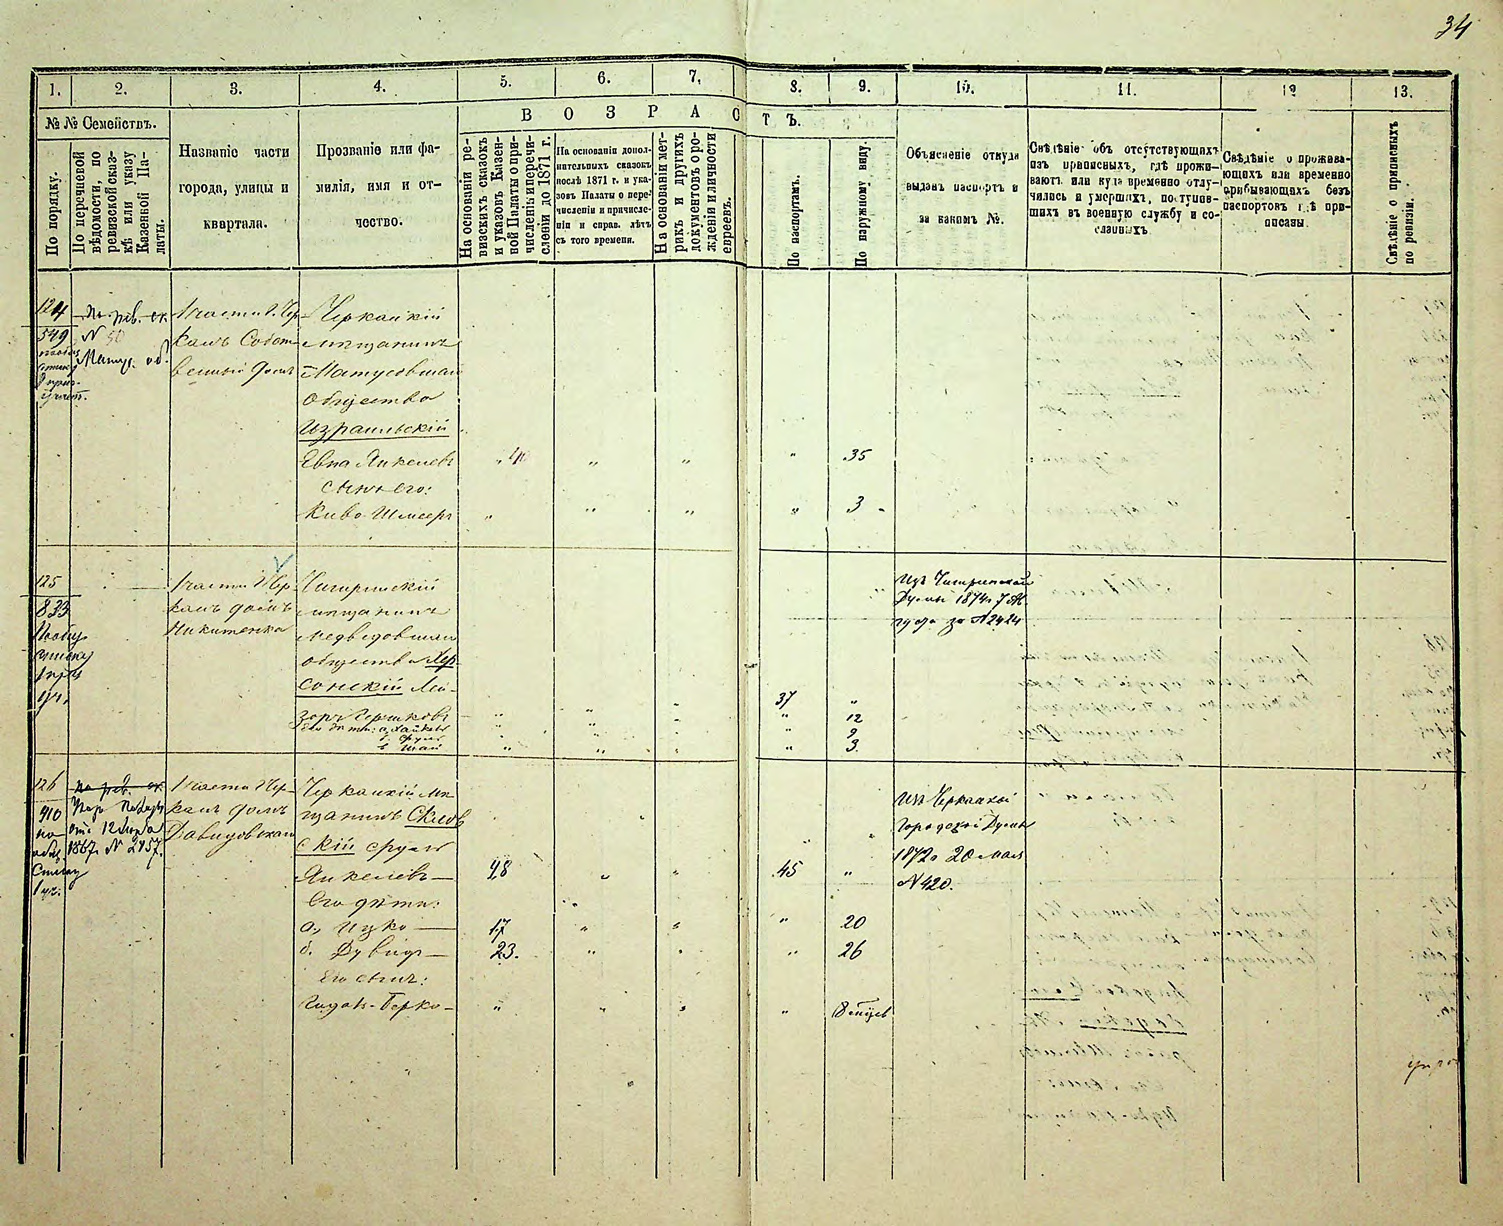 34
1. 2. 3. 4. 5. 6. 7. 8. 9. 10. 11. 12 13.
№ № Семействъ.
По порядку.
По перечневой вѣдомости, по ревизской сказкѣ или указу Казенной Палаты.
Названіе части
города, улицы и
квартала.
Прозваніе или фа-
милія, имя и от-
чество.
В О З Р А С Т Ъ.
На основаніи ре-
визскихъ сказокъ
и указовъ Казен-
ной Палаты о при-
численіи и перечи-
сленіи до 1871 г.
На основаніи допол-
нительныхъ сказокъ
послѣ 1871 г. и ука-
зовъ Палаты о пере-
численіи и причисле-
ніи и справ. лѣтъ
съ того времени.
На основаніи мет-
рикъ и другихъ
документовъ о ро-
жденіи и личности
евреевъ.
По паспортамъ.
По наружному виду.
Объясненіе откуда
выданъ паспортъ и
за какимъ №.
Свѣдѣніе объ отсутствующихъ
изъ приписныхъ, гдѣ прожи-
ваютъ или куда временно отлу-
чились и умершихъ, поступив-
шихъ въ военную службу и со-
сланныхъ
Свѣдѣніе о прожива-
ющихъ или временно
прибывающихъ безъ
паспортовъ гдѣ при-
писаны
Свѣдѣніе о приписныхъ
по ревизіи.
124
549
По рев. ск.
N 50
1 части г. Чер-
касъ Собст-
венный домъ
Черкаскій
мѣщанинъ
Матусовскаго
общества
Израильскій
Евна Янкелевъ
40 " " " 35
сынъ его:
Киво-Шмееръ " " " " 3
125
833
1 части г. Чер-
касъ домъ
Никитенка
Чигиринскій
мѣщанинъ
Медведовскаго
общества Хер-
сонскій Лей-
зоръ Гершковъ
37 "
Его дѣти: а, Хаймъ " 12
б Сруль " 9
в Шай " 3
Изъ Чигиринской
Думы 1874 г. 7 Ав-
густа за N 2424
126
910
По рев. ск.
отъ 12
1867 N 2457.
1 части г. Чер-
касъ домъ
Давидовскаго
Черкаскій мѣ-
щанинъ Склов-
скій Сруль
Янкелевъ — 48 " " 45 "
Его дѣти:
а, Ицко — 17 " " " 20
б. Дувидъ — 23. " " " 26
Его сынъ:
Гидаль-Берко — " " " "
Изъ Черкаской
Городской Думы
1872 г. 20 мая
N 420.